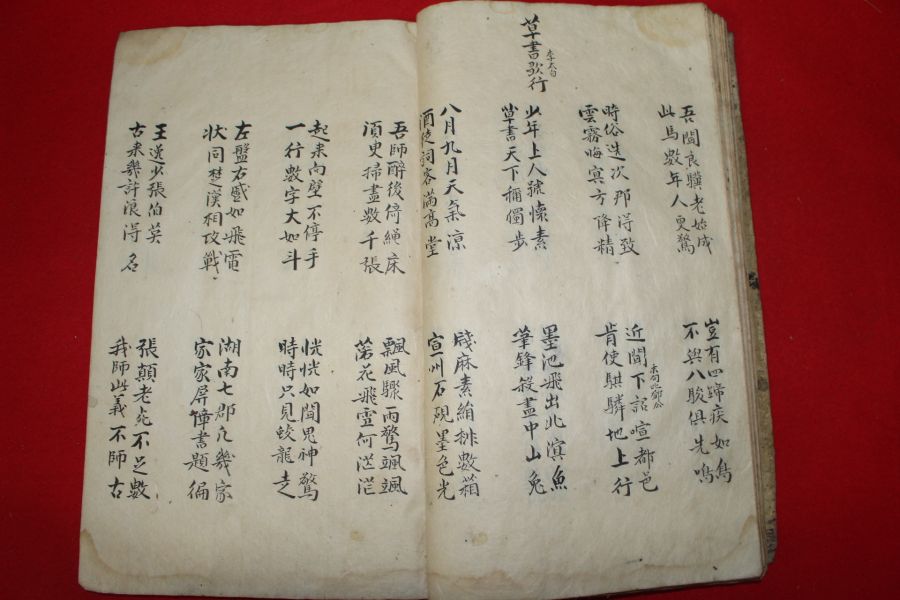 吾聞良驥老始成
此馬數年人更驚
豈有四蹄疾如鳥
不與八駿俱先鳴
時俗造次那得致
雲霧晦冥方降精
近聞下詔喧都邑
肯使騏驎地上行
草書歌行 李太白
少年上人號懷素
草書天下稱獨步
墨池飛出北溟魚
筆鋒殺盡中山兔
八月九月天氣凉
酒徒詞客滿高堂
牋麻素絹排數箱
宣州石硯墨色光
吾師醉後倚繩床
須臾掃盡數千張
飄風驟雨驚颯颯
落花飛雪何茫茫
起來向壁不停手
一行數字大如斗
恍恍如聞鬼神驚
時時只見蛟龍走
左盤右蹙如飛電
狀同楚漢相攻戰
湖南七郡凡幾家
家家屏障書題徧
王逸少張伯英
古來幾許浪得名
張顛老死不足數
我師此義不師古